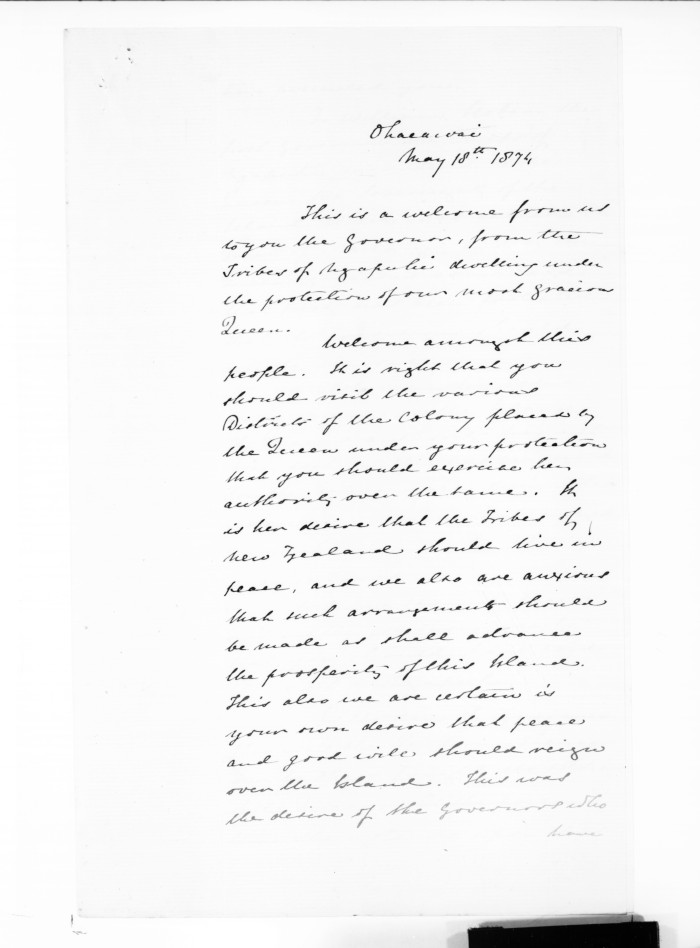 Ohaeawai
May 18th 1874
This is a welcome from us
to you the Governor, from the
Tribes of Ngapuhi dwelling under
the protection of our most gracious
Queen.
Welcome amongst this
people. It is right that you
should visit the various
Districts of the Colony placed by
the Queen under your protection
that you should exercise her
authority over the same. It
is her desire that the Tribes of
New Zealand should live in
peace, and we also are anxious
that such arrangements should
be made as shall advance
the prosperity of this Island.
This also we are certain is
your own desire that peace
and good will should reign
over the Island. This was
the desire of the Governors who
have